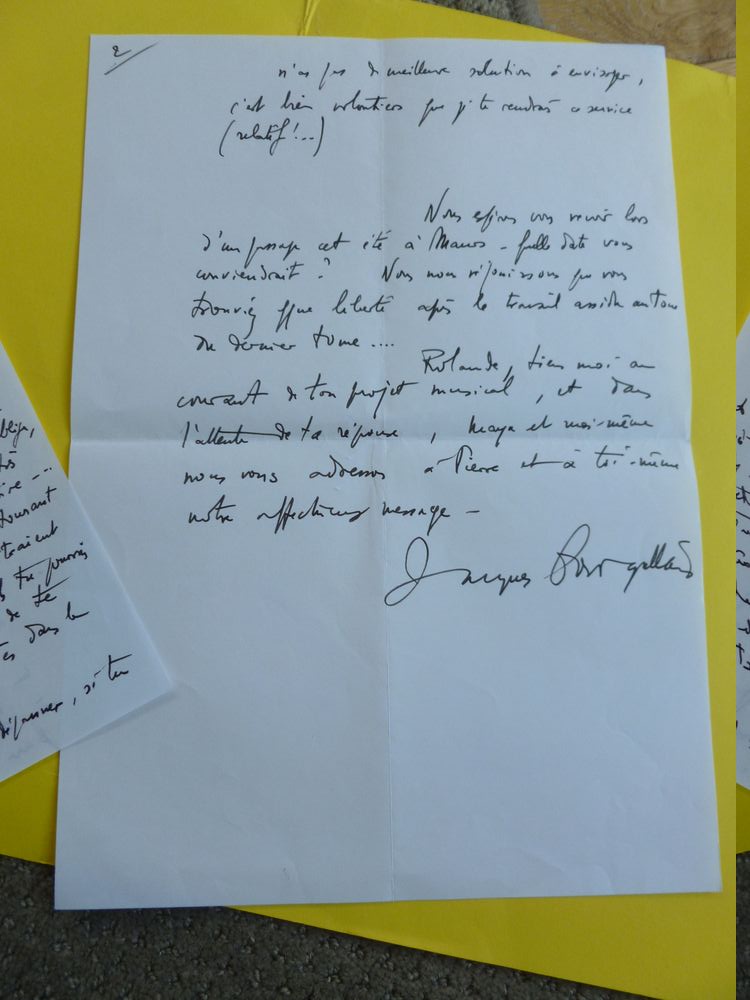 2
n'as pas de meilleure solution à envisager,
c'est bien volontiers que je te rendrai ce service
(relatif!...)
Nous espérons vous revoir lors
d'un passage cet été à - Quelle date vous
conviendrait ? Nous nous réjouissons que vous
trouviez qque liberté après le travail assidu autour
du dernier tome ....
Rolande, tiens moi au
courant de ton projet musical, et dans
l'attente de ta réponse, Maya et moi-même
nous vous adressons à Pierre et à toi-même
notre affectueux message -
Jacques
tu pourrais
de te
dans la
dépanner, si tu